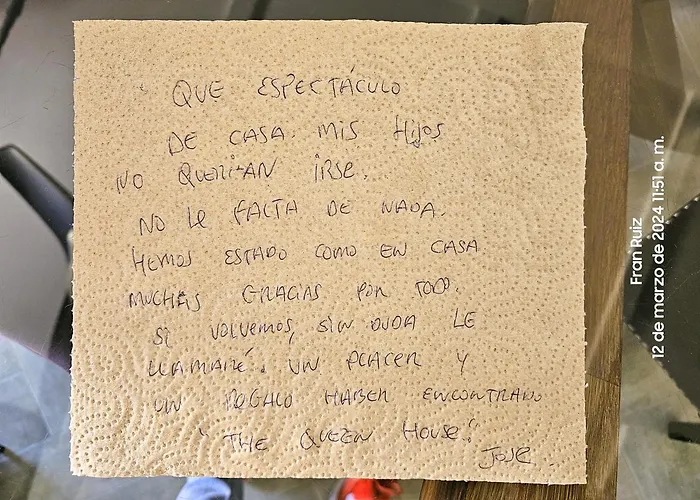 QUE ESPECTÁCULO
DE CASA. MIS HIJOS
NO QUERIAN IRSE.
NO LE FALTA DE NADA.
HEMOS ESTADO COMO EN CASA
MUCHAS GRACIAS POR TODO.
SI VOLVEMOS, SIN DUDA LE
LLAMARÉ. UN PLACER Y
UN REGALO HABER ENCONTRADO
"THE QUEEN HOUSE."
JOSE
Fran Ruiz
12 de marzo de 2024 11:51 a. m.